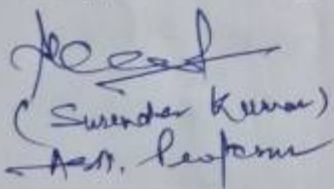 (Surender Kumar)
Asst. Professor